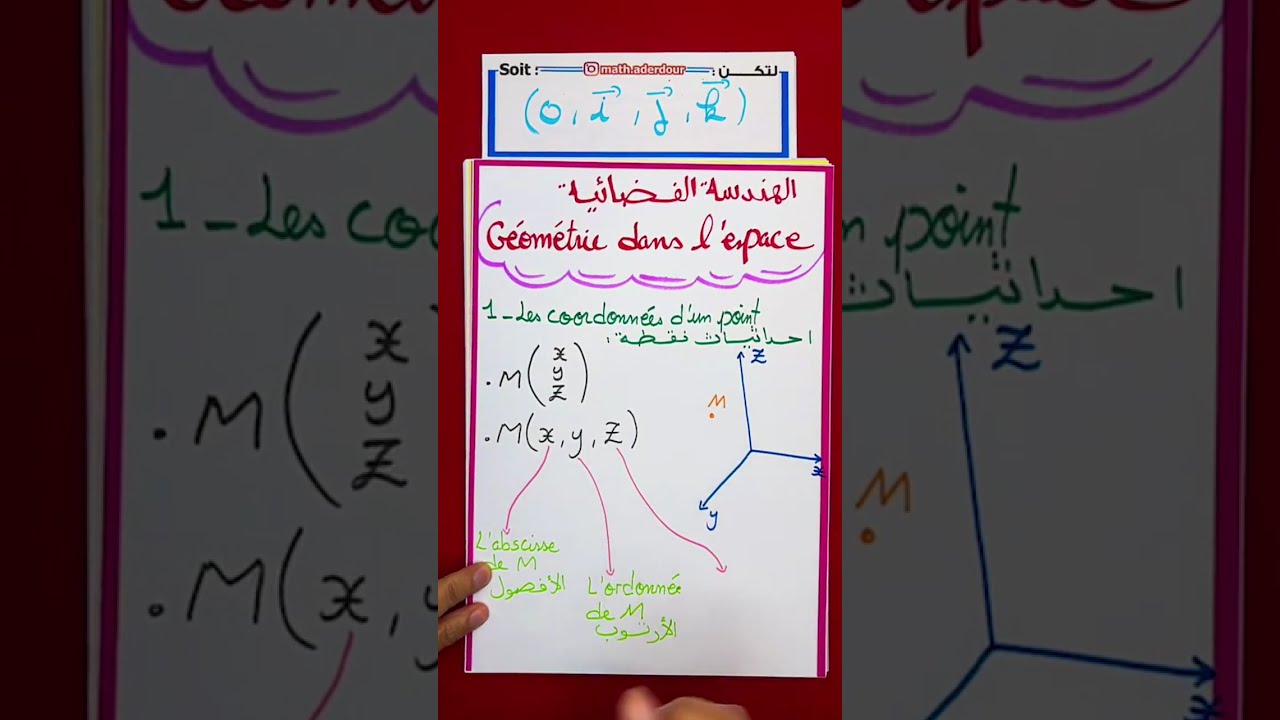 Soit : math.aderdour لتكـــن :
(o, i, j, k)
الهندسة الفضائية
Géométrie dans l'espace
1_Les coordonnées d'un point
احداثيات نقطة :
. M(x y z)
. M(x, y, z)
z
M
x
y
L'abscisse
de M
الأفصول
L'ordonnée
de M
الأرتوب